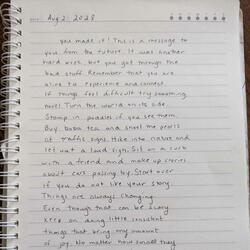 Aug 2. 2028
you made it! This is a message to
you from the future. It was another
hard week, but you got through the
bad stuff. Remember that you are
alive to experience and connect
if things feel difficult try something
novel. Turn the world on its side.
Stomp in puddles if you see them.
Buy boba tea and shoot the pearls
at traffic signs. Hike into nature and
let out a loud sigh. Sit on a curb
with a friend and make up stories
about cars passing by. Start over
if you do not like your story.
Things are always changing.
Even though that can be scary
keep on doing little consistent
things that bring any amount
of joy. No matter how small they